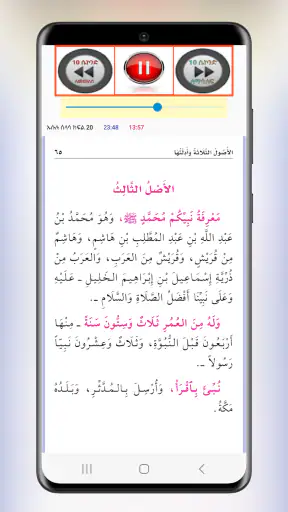 10 ሴኮንድ
10 ሴኮንድ
አሱሉ ሰላሳ ክፍል.20 23:48 13:57
الأُصُولُ الثَّلَاثَةُ وَأَدِلَّتُهَا ٦٥
الأَصْلُ الثَّالِثُ
مَعْرِفَةُ نَبِيِّكُمْ مُحَمَّدٍ ﷺ، وَهُوَ مُحَمَّدُ بْنُ
عَبْدِ اللَّهِ بْنِ عَبْدِ المُطَّلِبِ بْنِ هَاشِمٍ، وَهَاشِمٌ
مِنْ قُرَيْشٍ، وَقُرَيْشٌ مِنَ العَرَبِ، وَالعَرَبُ مِنْ
ذُرِّيَّةِ إِسْمَاعِيلَ بْنِ إِبْرَاهِيمَ الخَلِيلِ ـ عَلَيْهِ
وَعَلَى نَبِيِّنَا أَفْضَلُ الصَّلَاةِ وَالسَّلَامِ ـ.
وَلَهُ مِنَ العُمُرِ ثَلَاثٌ وَسِتُّونَ سَنَةً ـ مِنْهَا
أَرْبَعُونَ قَبْلَ النُّبُوَّةِ، وَثَلَاثٌ وَعِشْرُونَ نَبِيّاً
رَسُولاً ـ.
نُبِّئَ بِـاقْرَأْ، وَأُرْسِلَ بِـالمُدَّثِّرِ، وَبَلَدُهُ
مَكَّةُ.